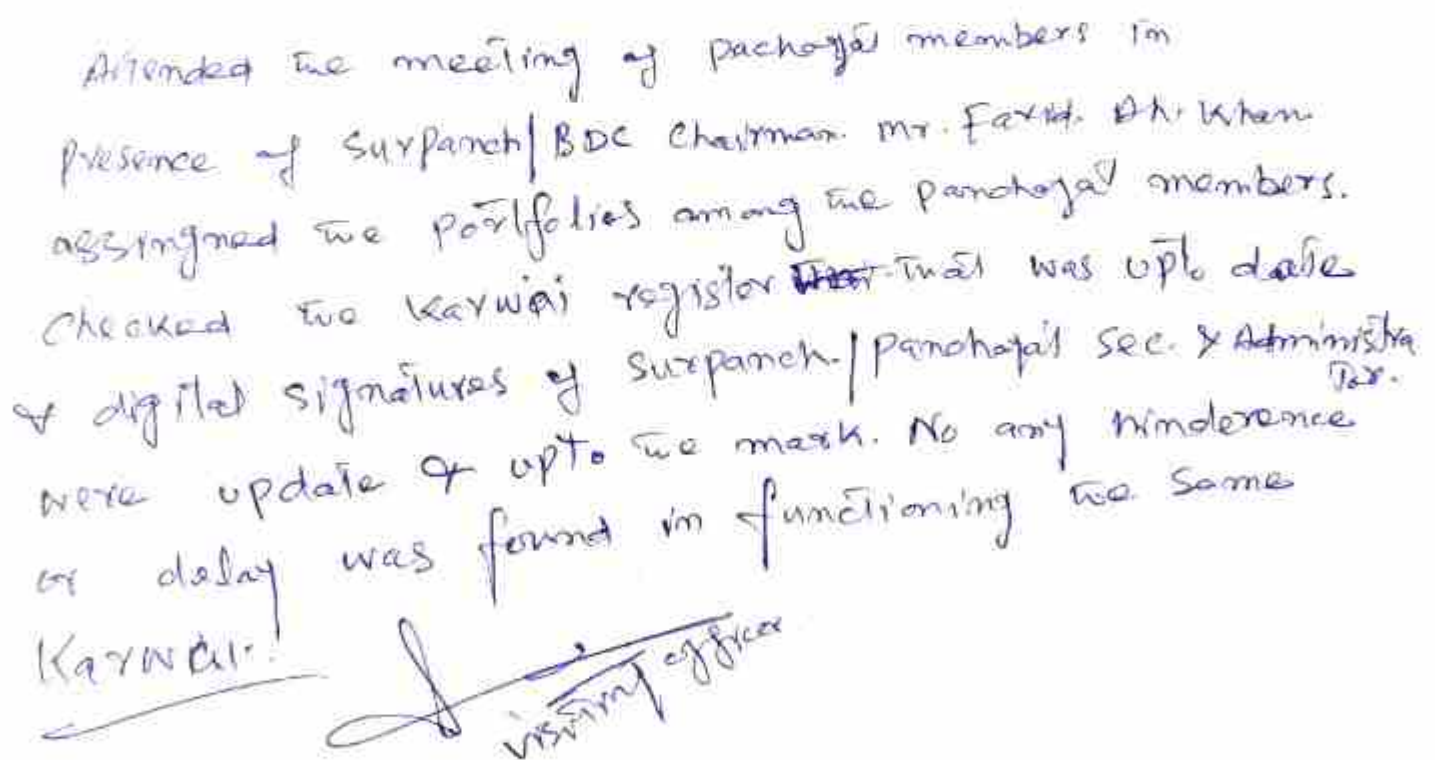 Attended the meeting of pachayat members in
presence of Surpanch/BDC Chairman. Mr. Farid. Ah. Khan.
assingned the Portfolies among the panchayat members.
Checked the Karwai register that was upto date
& digital signatures of Surpanch./panchayat Sec. & Administra
tor.
were update & upto the mark. No any hinderence
or delay was found in functioning the same
Karwai.
visiting officer